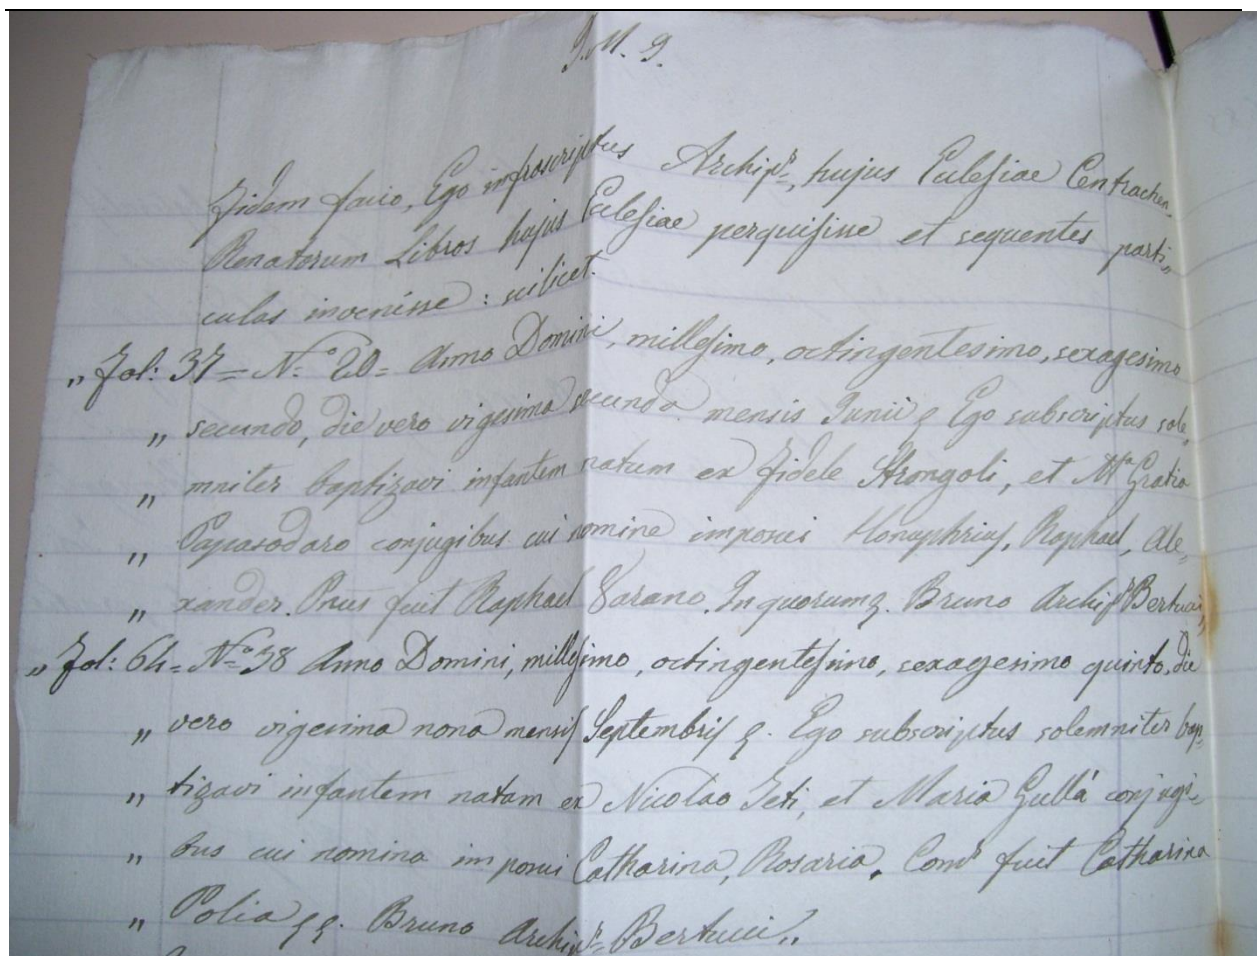 J. M. J.
Fidem facio, Ego infrascriptus Archip.r, hujus Eclesiae Centrachen„
Renatorum Libros hujus Eclesiae perquisisse et sequentes parti„
culas invenisse: scilicet.
„ Fol: 37 = N.o 20 = Anno Domini, millesimo, octingentesimo, sexagesimo
„ secundo, die vero vigesima secunda mensis Junii Ego subscriptus sole„
„ mniter baptizavi infantem natum ex Fidele Strongoli, et M.a Gratia
„ Papasodaro conjugibus cui nomine imposui Honuphrius, Raphael, Ale„
„ xander. Pnus fuit Raphael Varano. In quorum Bruno Archip.r Bertucci„
„ Fol: 64 = N.o 38 Anno Domini, millesimo, octingentesimo, sexagesimo quinto, die
„ vero vigesima nona mensis Septembris. Ego subscriptus solemniter bap„
„ tizavi infantem natam ex Nicolao Jeti, et Maria Gullà conjugi„
„ bus cui nomina imposui Catharina, Rosaria. Com.r fuit Catharina
„ Polia. Bruno Archip.r Bertucci„